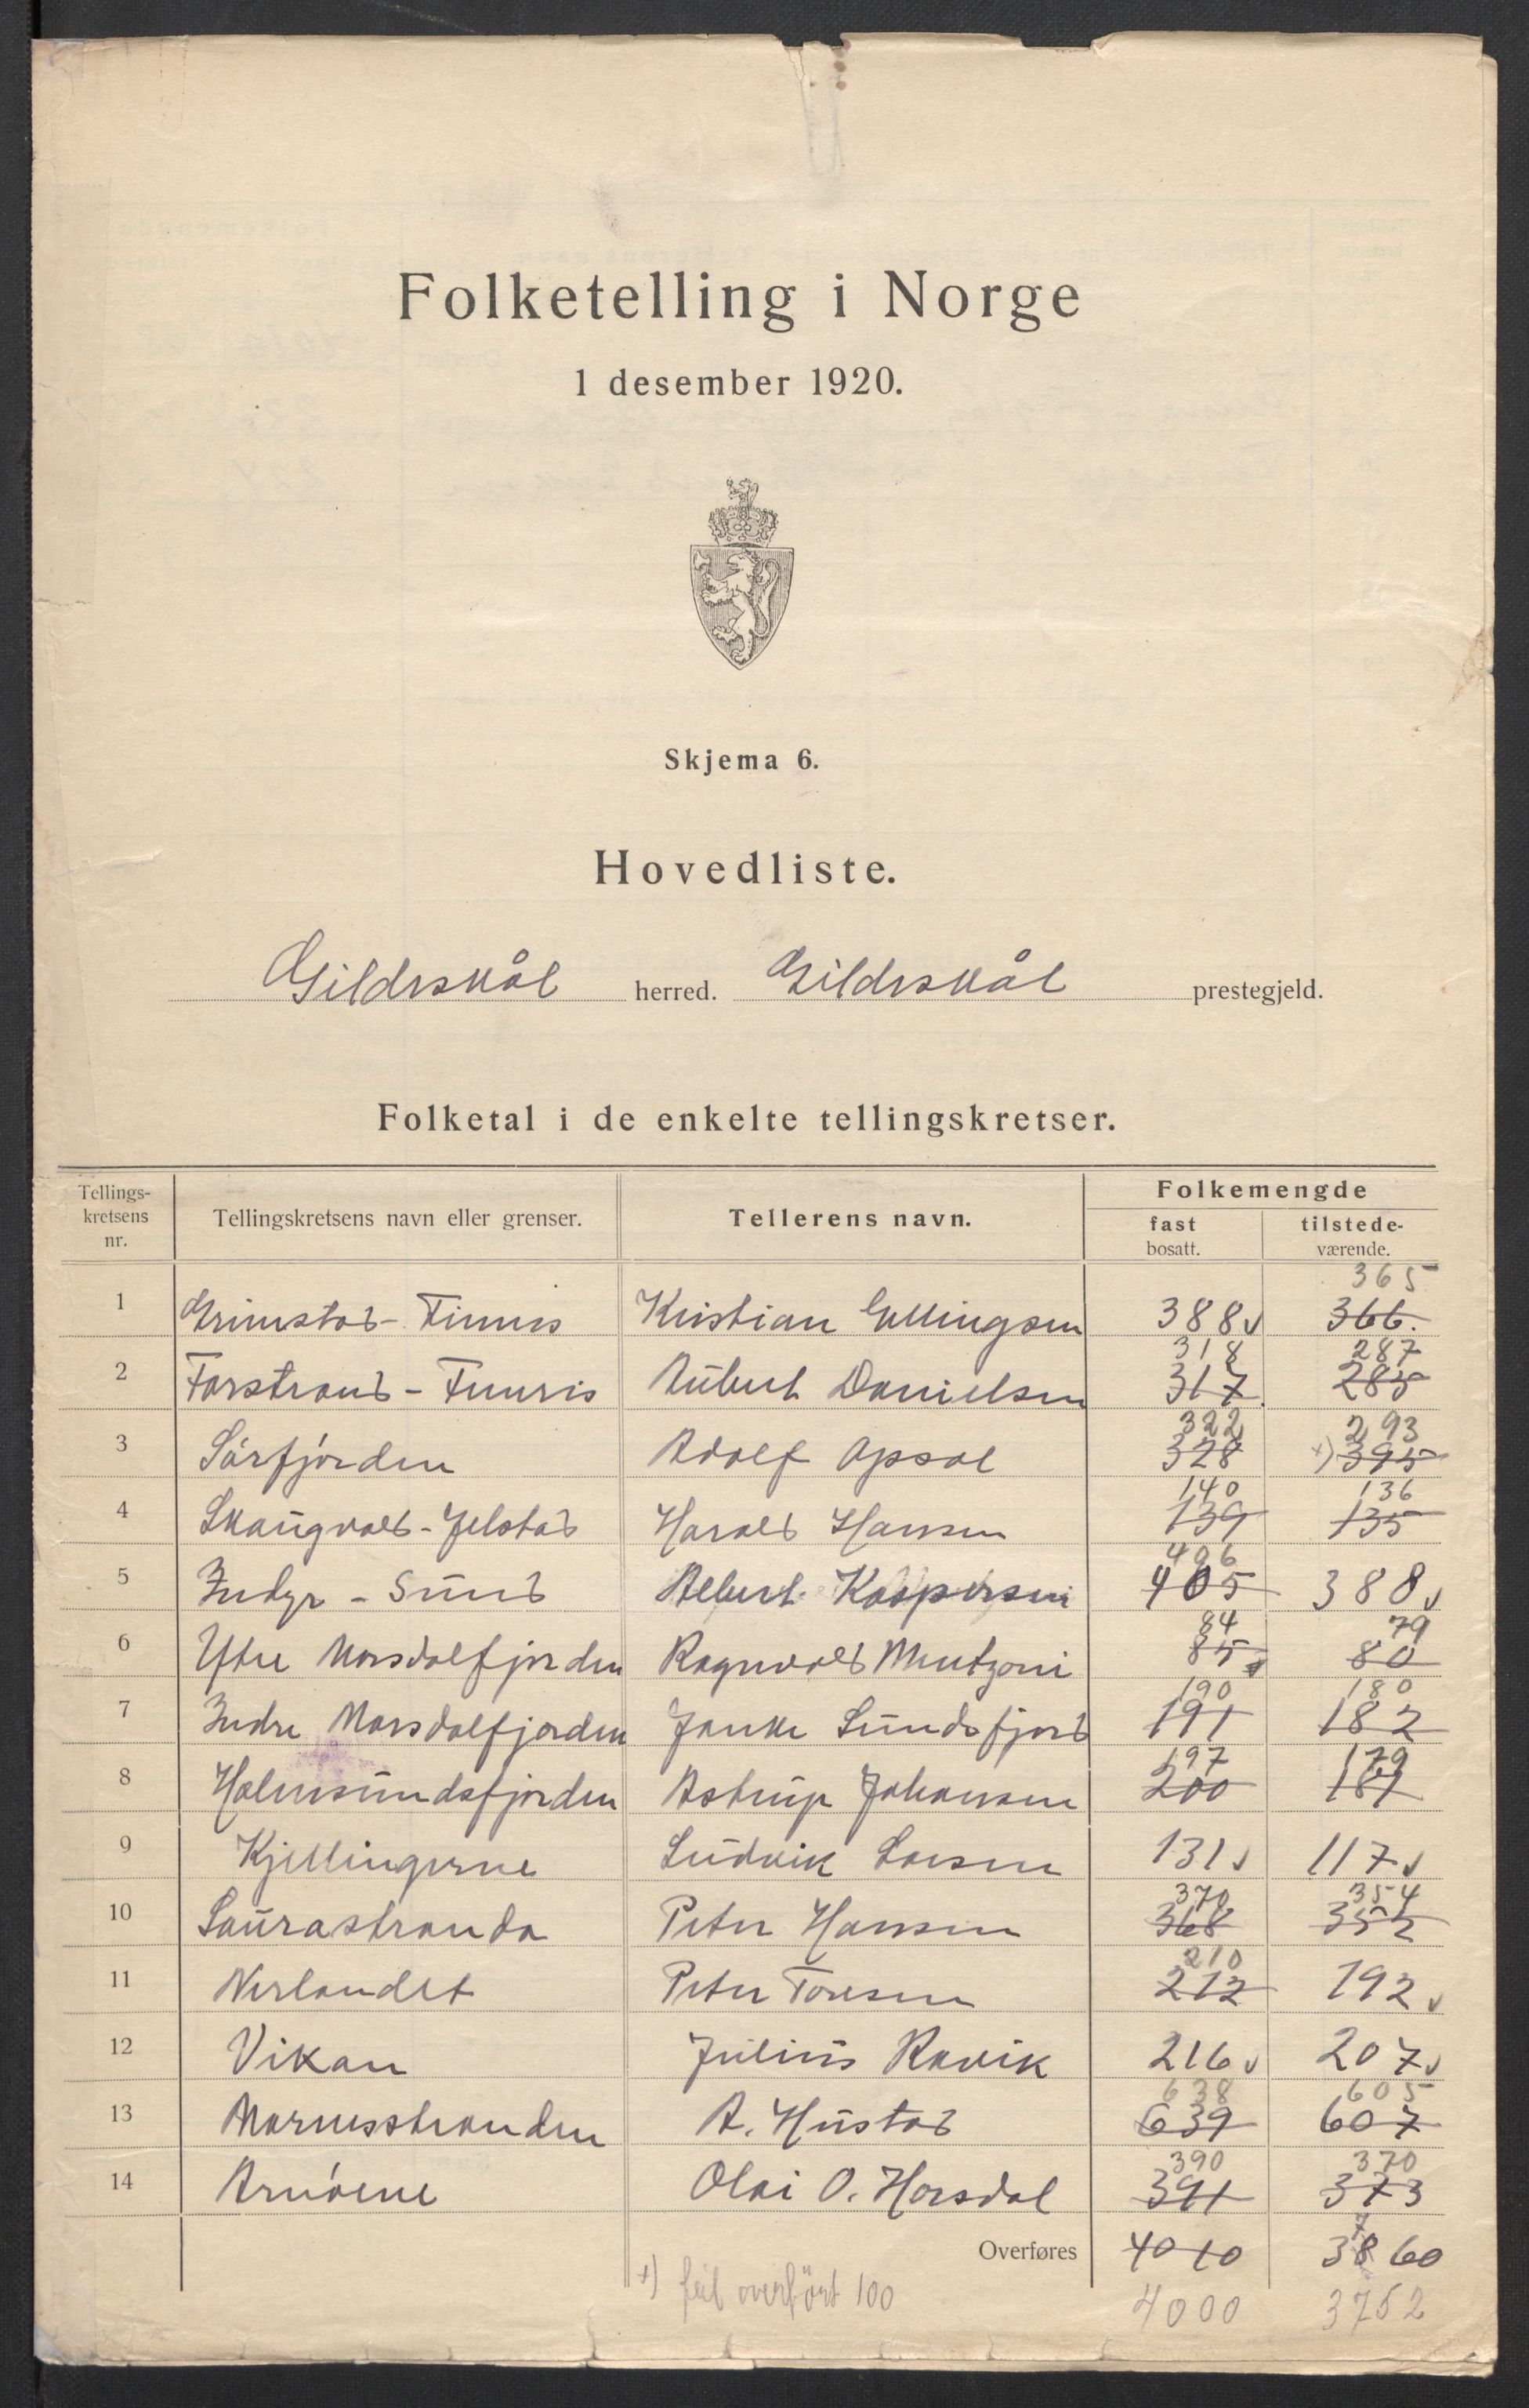 Folketelling i Norge
1 desember 1920.
Skjema 6.
Hovedliste.
Gildeskål herred. Gildeskål prestegjeld.
Folketal i de enkelte tellingskretser.
Tellings-kretsens nr. Tellingskretsens navn eller grenser. Tellerens navn. Folkemengde fast bosatt. tilstede-værende.
365
1 Grimstad - Finnes Kristian Ellingsen 388 v 366.
318 287
2 Forstrand - Danielsen 317. 285
322 293
3 Sörfjorden Adolf Opsal 328 +) 395
140 136
4 Skaugvold - Jelstad Harald Hansen 139 135
406
5 Indyr - Sund Albert Kaspersen 405 388 v
84 79
6 Ytre Morsdalfjorden Ragnvald Mentzoni 85 80
190 180
7 Indre Morsdalfjorden Sundsfjord 191 182
197 179
8 Holmsundsfjorden Astrup Johansen 200 181
9 Kjellingerne Ludvik Larsen 131 v 117 v
370 354
10 Saurastranda Peter Hansen 368 352
210
11 Nerlandet Peter Toresen 212 192 v
12 Vikan Julius Ravik 216 v 207 v
638 605
13 Mornesstranden A. Hustad 639 607
390 370
14 Arnöene Olai O. Horsdal 391 373
7
Overføres 4010 3860
+) feil overfört 100 4000 3752